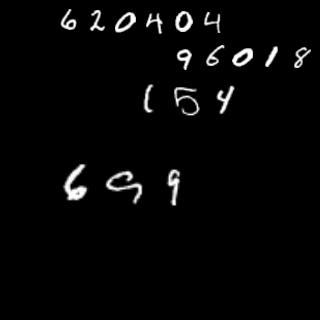 620404
96018
154
699